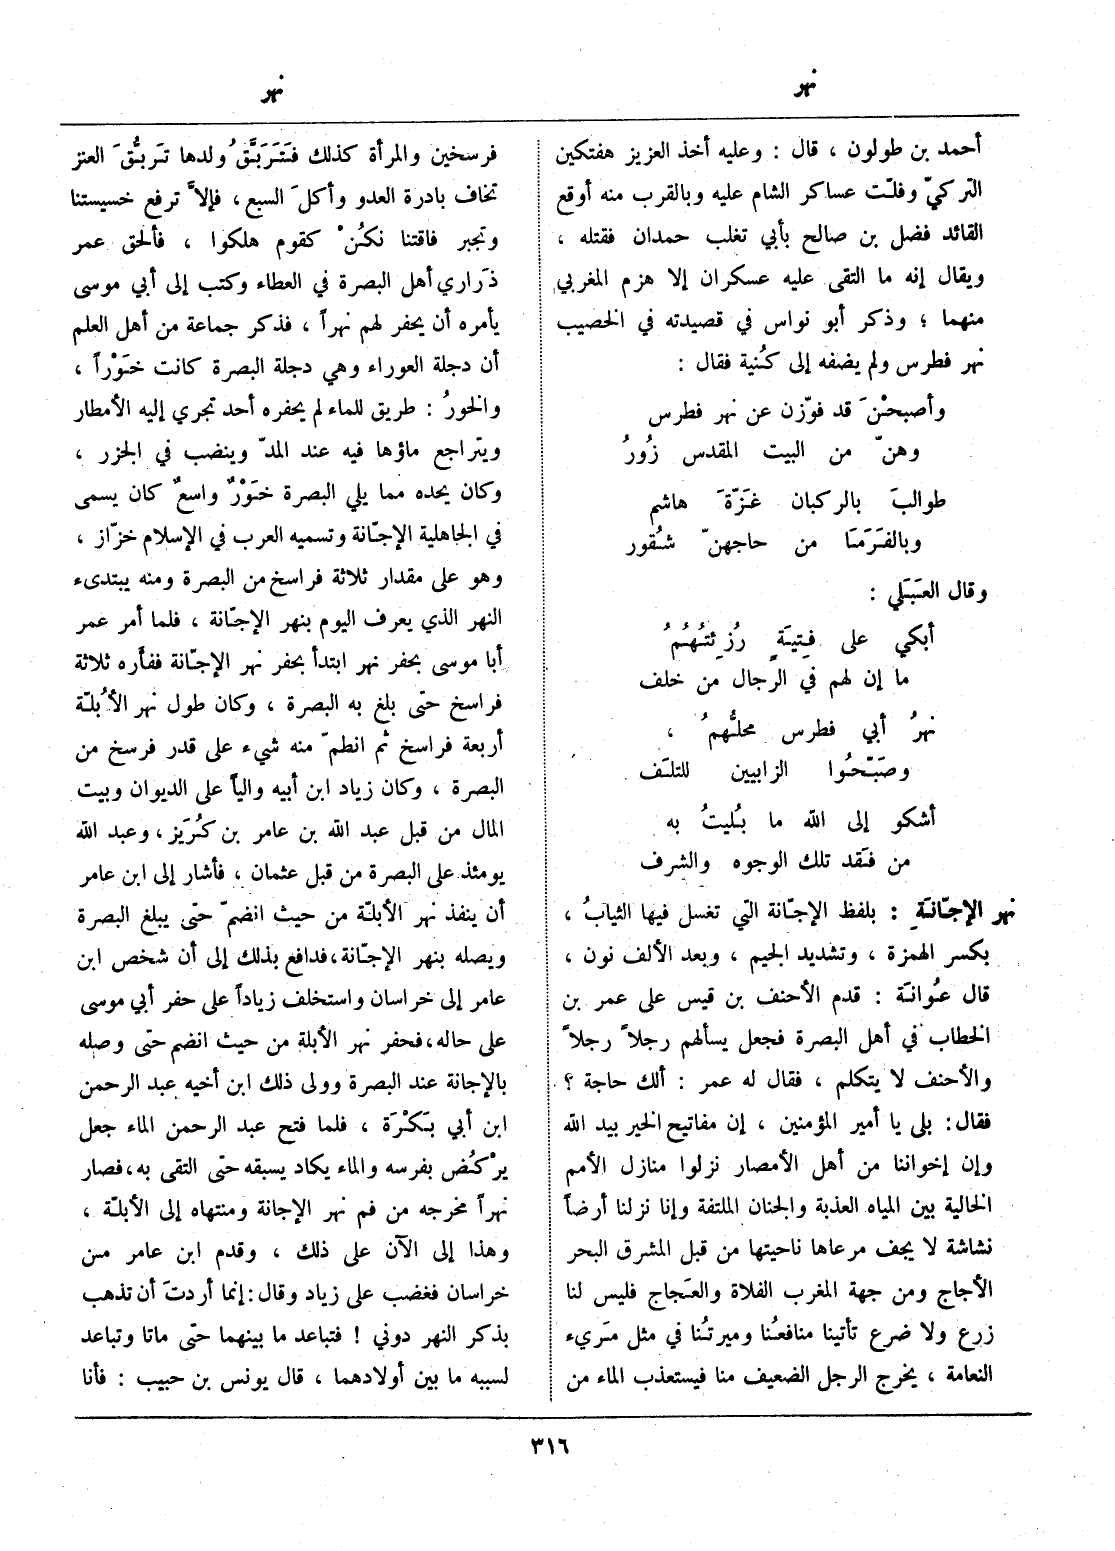 نهر
نهر
أحمد بن طولون ، قال : وعليه أخذ العزيز هفتكين
التركيّ وفلّت عساكر الشام عليه وبالقرب منه أوقع
القائد فضل بن صالح بأبي تغلب حمدان فقتله ،
ويقال إنه ما التقى عليه عسكران إلا هزم المغربي
منهما ؛ وذكر أبو نواس في قصيدته في الخصيب
نهر فطرس ولم يضفه إلى كُنية فقال :
وأصبحْنَ قد فوّزن عن نهر فطرس
وهنّ من البيت المقدس زُورُ
طوالبَ بالركبان غَزّةَ هاشم
وبالفَرَمَا من حاجهنّ شُقور
وقال العَبَلي :
أبكي على فِتيَةٍ رُزِئتُهُمُ
ما إن لهم في الرجال من خلف
نهرُ أبي فطرس محلُّهمُ ،
وصَبّحُوا الزابيين للتلَف
أشكو إلى الله ما بُليتُ به
من فَقد تلك الوجوه والشرف
نهر الإجّانَةِ : بلفظ الإجّانة التي تغسل فيها الثيابُ ،
بكسر الهمزة ، وتشديد الجيم ، وبعد الألف نون ،
قال عُوانَة : قدم الأحنف بن قيس على عمر بن
الخطاب في أهل البصرة فجعل يسألهم رجلاً رجلاً
والأحنف لا يتكلم ، فقال له عمر : ألك حاجة ؟
فقال : بلى يا أمير المؤمنين ، إن مفاتيح الخير بيد الله
وإن إخواننا من أهل الأمصار نزلوا منازل الأمم
الخالية بين المياه العذبة والجنان الملتفة وإنا نزلنا أرضاً
نشاشة لا يجف مرعاها ناحيتها من قبل المشرق البحر
الأجاج ومن جهة المغرب الفلاة والعَجاج فليس لنا
زرع ولا ضرع تأتينا منافعُنا وميرتُنا في مثل مَريء
النعامة ، يخرج الرجل الضعيف منا فيستعذب الماء من
فرسخين والمرأة كذلك فتَتَرَبَّقُ ولدها تَرَبُّقَ العنز
تخاف بادرة العدو وأكلَ السبع ، فإلاّ ترفع خسيستنا
وتجبر فاقتنا نكُنْ كقوم هلكوا ، فألحق عمر
ذراري أهل البصرة في العطاء وكتب إلى أبي موسى
يأمره أن يحفر لهم نهراً ، فذكر جماعة من أهل العلم
أن دجلة العوراء وهي دجلة البصرة كانت خَوْراً ،
والخورُ : طريق للماء لم يحفره أحد تجري إليه الأمطار
ويتراجع ماؤها فيه عند المدّ وينضب في الجزر ،
وكان يحده مما يلي البصرة خَوْرٌ واسعٌ كان يسمى
في الجاهلية الإجّانة وتسميه العرب في الإسلام خزّاز ،
وهو على مقدار ثلاثة فراسخ من البصرة ومنه يبتدىء
النهر الذي يعرف اليوم بنهر الإجّانة ، فلما أمر عمر
أبا موسى بحفر نهر ابتدأ بحفر نهر الإجّانة ففأره ثلاثة
فراسخ حتى بلغ به البصرة ، وكان طول نهر الأُبلّة
أربعة فراسخ ثم انطمّ منه شيء على قدر فرسخ من
البصرة ، وكان زياد ابن أبيه والياً على الديوان وبيت
المال من قبل عبد الله بن عامر بن كُرَيز ، وعبد الله
يومئذ على البصرة من قبل عثمان ، فأشار إلى ابن عامر
أن ينفذ نهر الأبلّة من حيث انضمّ حتى يبلغ البصرة
ويصله بنهر الإجّانة، فدافع بذلك إلى أن شخص ابن
عامر إلى خراسان واستخلف زياداً على حفر أبي موسى
على حاله، فحفر نهر الأبلة من حيث انضم حتى وصله
بالإجانة عند البصرة وولى ذلك ابن أخيه عبد الرحمن
ابن أبي بَكْرَة ، فلما فتح عبد الرحمن الماء جعل
يرْكُض بفرسه والماء يكاد يسبقه حتى التقى به، فصار
نهراً مخرجه من فم نهر الإجانة ومنتهاه إلى الأبلّة ،
وهذا إلى الآن على ذلك ، وقدم ابن عامر من
خراسان فغضب على زياد وقال : إنما أردتَ أن تذهب
بذكر النهر دوني ! فتباعد ما بينهما حتى ماتا وتباعد
لسببه ما بين أولادهما ، قال يونس بن حبيب : فأنا
٣١٦